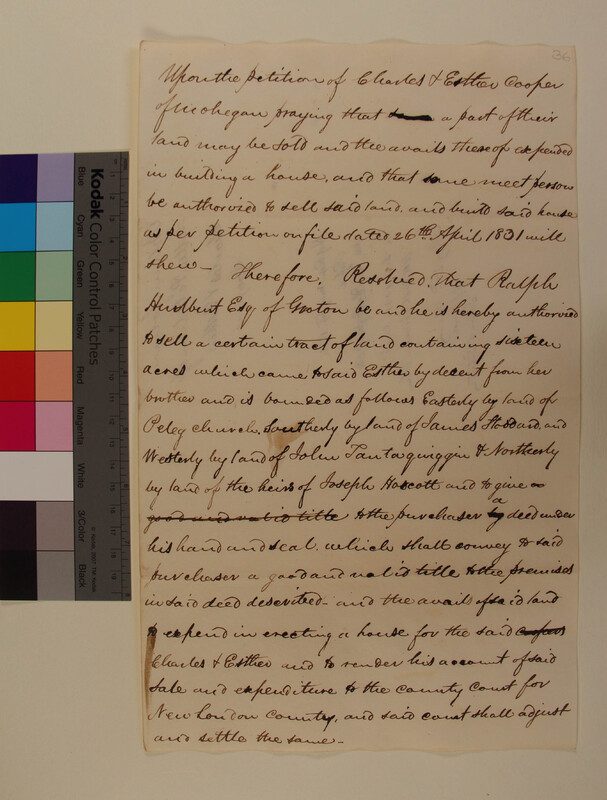 36
Upon the petition of Charles & Esther Cooper
of Mohegan praying that a part of their
land may be sold and the avails thereof expended
in building a house, and that some meet person
be authorized to sell said land, and build said house
as per petition on file dated 26th April 1831 will
shew— Therefore, Resolved, That Ralph
Hurlbutt Esq of Groton be and he is hereby authorized
to sell a certain tract of land containing sixteen
acres which came to said Esther by decent from her
brother and is bounded as follows Easterly by land of
Peleg Church, Southerly by land of James Stoddard, and
Westerly by land of John Tantaquiggin & Northerly
by land of the heirs of Joseph Hascott and to give
good and valid title to the purchaser by a deed under
his hand and seal, which shall convey to said
purchaser a good and valid title to the premises
in said deed described— and the avails of said land
to expend in erecting a house for the said Coopers
Charles & Esther and to render his account of said
sale and expenditure to the county court for
New London County, and said court shall adjust
and settle the same—
Kodak Color Control Patches
Blue
Cyan
Green
Yellow
Red
Magenta
White
3/Color
Black